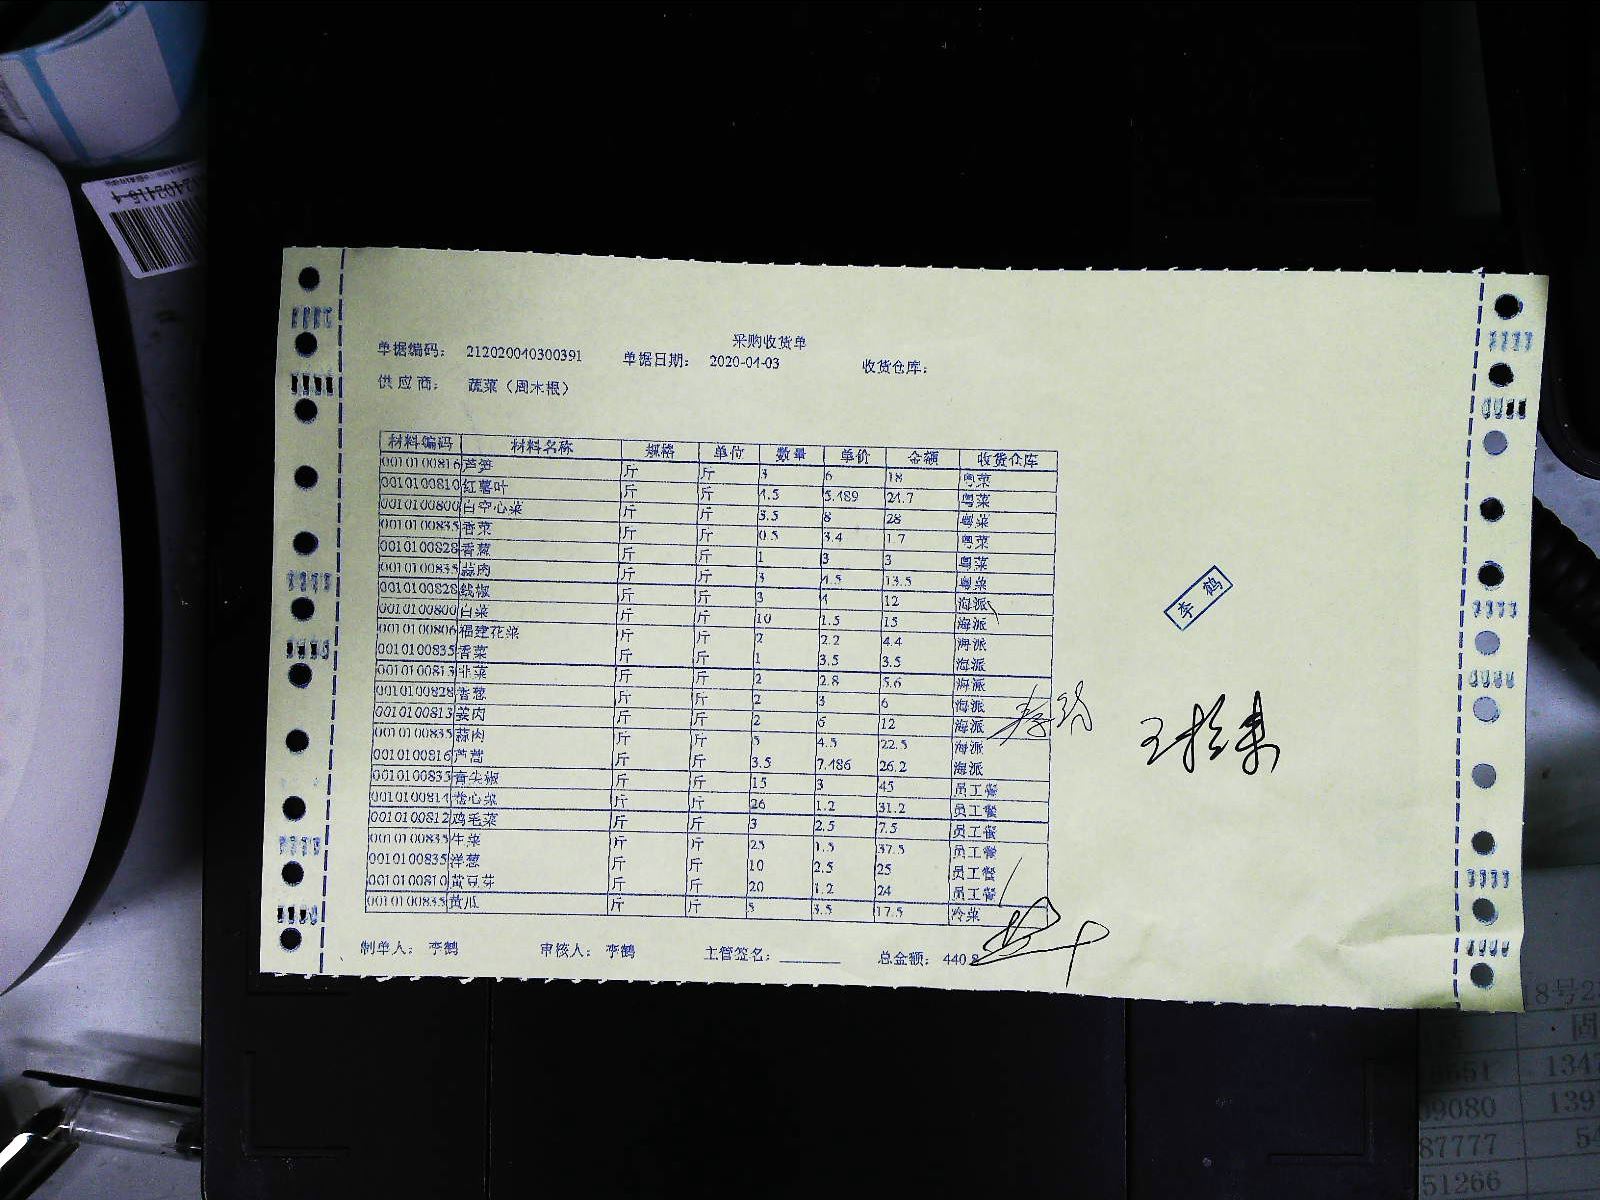 采购收货单
单据编码： 212020040300391 单据日期： 2020-04-03 收货仓库：
供应商： 蔬菜（周木根）
材料编码 材料名称 规格 单位 数量 单价 金额 收货仓库
0010100816 芦笋 斤 斤 3 6 18 粤菜
0010100810 红薯叶 斤 斤 21.7 粤菜
0010100800 白空心菜 斤 斤 3.5 8 28 粤菜
0010100835 香菜 斤 斤 0.5 3.4 1.7 粤菜
0010100828 香葱 斤 斤 1 3 3 粤菜
0010100835 蒜肉 斤 斤 3 4.5 13.5 粤菜
0010100828 线椒 斤 斤 3 4 12 海派
0010100800 白菜 斤 斤 10 1.5 15 海派
0010100806 福建花菜 斤 斤 2 2.2 4.4 海派
0010100835 香菜 斤 斤 1 3.5 3.5 海派
0010100813 韭菜 斤 斤 2 2.8 5.6 海派
0010100828 香葱 斤 斤 2 3 6 海派
0010100813 姜肉 斤 斤 2 6 12 海派
0010100835 蒜肉 斤 斤 5 4.5 22.5 海派
0010100816 芦蒿 斤 斤 3.5 7.486 26.2 海派
0010100835 青尖椒 斤 斤 15 3 45 员工餐
0010100814 卷心菜 斤 斤 26 1.2 31.2 员工餐
0010100812 鸡毛菜 斤 斤 3 2.5 7.5 员工餐
0010100835 生菜 斤 斤 25 1.5 37.5 员工餐
0010100835 洋葱 斤 斤 10 2.5 25 员工餐
0010100810 黄豆芽 斤 斤 20 1.2 24 员工餐
0010100835 黄瓜 斤 斤 5 3.5 17.5 冷菜
制单人： 李鹤 审核人： 李鹤 主管签名： 总金额： 440.8
李鹤